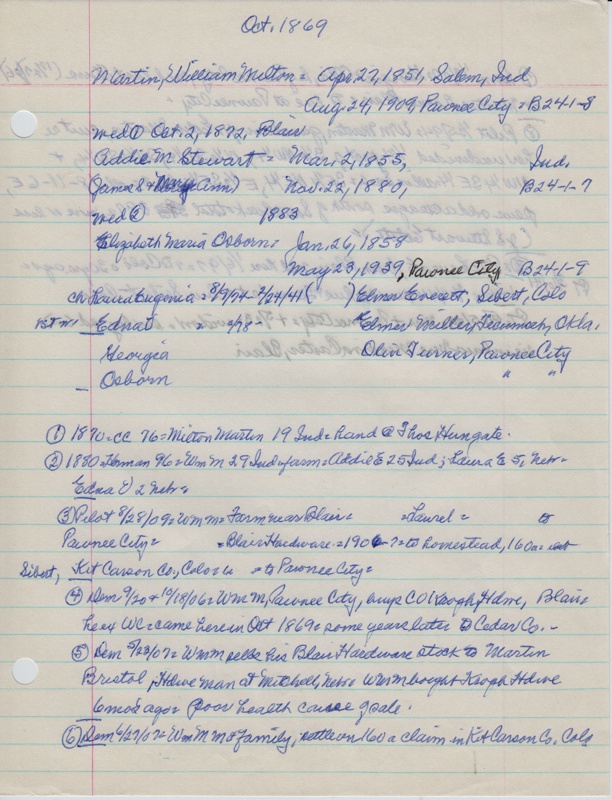 Oct. 1869
Martin, William Milton = Apr. 27, 1851, Salem, Ind
Aug. 24, 1909, Pawnee City = B24-1-8
wed ① Oct. 2, 1872, Blair
Addie M. Stewart = Mar. 2, 1855, Ind.
(James & Mary Ann) Nov. 22, 1880, B24-1-7
wed ② 1883
Elizabeth Maria Osborn = Jan. 26, 1858
May 23, 1939, Pawnee City B24-1-9
ch Laura Eugenia = 8/9/74 - 2/24/41 ( ) Elmer Everett, Sibert, Colo
1st w Edna = /78 - Elmer Miller, Tecumseh, Okla.
Georgia Olin Turner, Pawnee City
Osborn " "
① 1870 = CC 76 = Milton Martin 19 Ind = hand @ Thos. Hungate.
② 1880 = Herman 96 = Wm M 29 Ind = farm = Addie E 25 Ind; Laura E 5, Nebr =
Edna V 2 Nebr =
③ Pilot 8/28/09 = Wm M = Farm near Blair = = Laurel = to
Pawnee City = = Blair Hardware = 1906-7 = to homestead, 160a =
Sibert, Kit Carson Co., Colo = = to Pawnee City =
④ Dem 9/20 + 10/18/06 = Wm M, Pawnee City, buys CO Keogh Hdwe, Blair =
he ex WC = came here in Oct 1869 = some years later to Cedar Co. -
⑤ Dem 5/23/07 = Wm M sells his Blair Hardware stock to Martin
Bristol, Hdwe man at Mitchell, Nebr = Wm M bought Keogh Hdwe
6 mos ago = Poor health cause of sale.
⑥ Dem 6/27/07 = Wm M M & family, settle on 160 a claim in Kit Carson Co, Colo